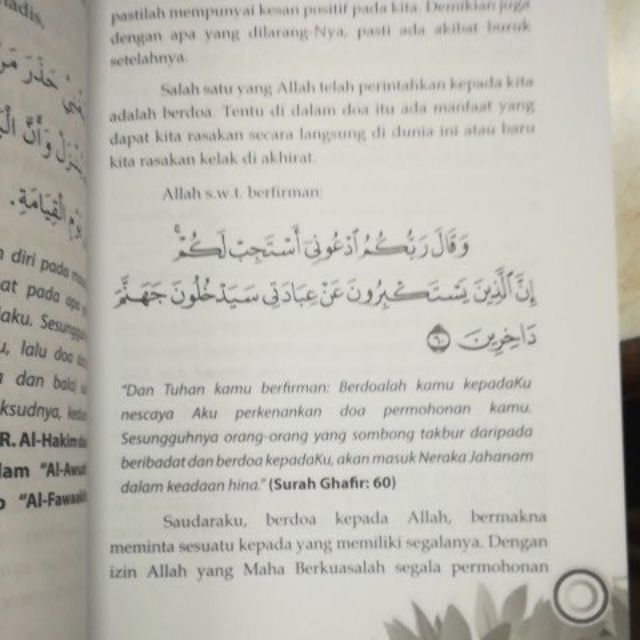 pastilah mempunyai kesan positif pada kita. Demikian juga
dengan apa yang dilarang-Nya, pasti ada akibat buruk
setelahnya.
Salah satu yang Allah telah perintahkan kepada kita
adalah berdoa. Tentu di dalam doa itu ada manfaat yang
dapat kita rasakan secara langsung di dunia ini atau baru
kita rasakan kelak di akhirat.
Allah s.w.t. berfirman:
وَقَالَ رَبُّكُمُ ٱدْعُونِىٓ أَسْتَجِبْ لَكُمْ ۚ
إِنَّ ٱلَّذِينَ يَسْتَكْبِرُونَ عَنْ عِبَادَتِى سَيَدْخُلُونَ جَهَنَّمَ
دَاخِرِينَ ٦٠
"Dan Tuhan kamu berfirman: Berdoalah kamu kepadaKu
nescaya Aku perkenankan doa permohonan kamu.
Sesungguhnya orang-orang yang sombong takbur daripada
beribadat dan berdoa kepadaKu, akan masuk Neraka Jahanam
dalam keadaan hina." (Surah Ghafir: 60)
Saudaraku, berdoa kepada Allah, bermakna
meminta sesuatu kepada yang memiliki segalanya. Dengan
izin Allah yang Maha Berkuasalah segala permohonan